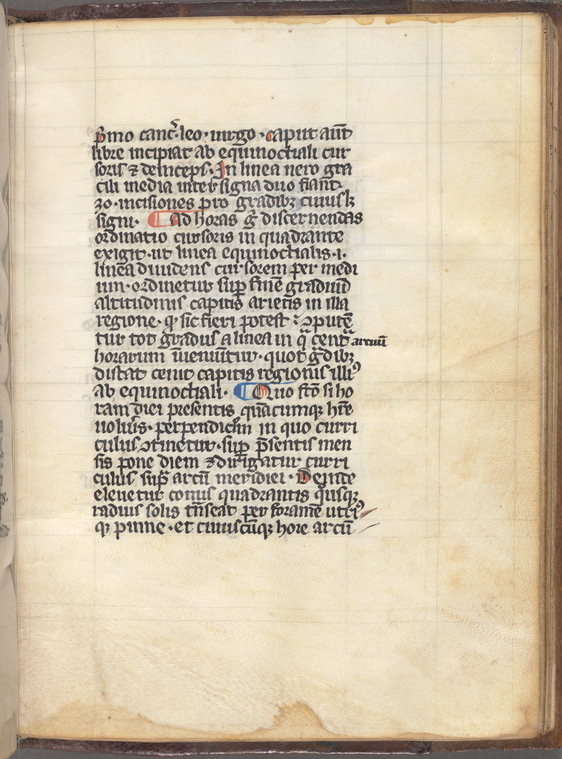 pͥmo cancͬ· leo· virgo· Caput aūt
libre incipiat ab equinoctiali cur
soris ⁊ deinceps· In linea uero gra
cili media inter signa duo fiant·
30· incisiones pro gradibꝫ cuiusl̄
signi· ¶ Ad horas ḡ discernendas
ordinatio cursoris in quadrante
exigit· ut linea equinoctialis· i·
linea diuidens cursorem per medi
um· ordinetur suꝑ finē graduū
altitudinis capitis arietis in illa
regione· qͥ sic fieri potest· ꝯputē
tur tot gradus a linea in qͣ centͣ arcuū
horarum ūueniūtur· quot gͣdibꝫ
distat cenit capitis regionis illiꝰ
ab equinoctiali· ¶ Quo fc̄o si ho
ram diei presentis quācumqꝫ hr̄e
uolūis· perpendiclm̄ in quo curri
culus ꝯtinetur· suꝑ p̄sentis men
sis pone diem ⁊ dirigatur curri
culus suꝑ arcū meridiei· Deinde
eleuetur conus quadrantis quusqꝫ
radius solis tn̄seat per foramē utriꝰ
qꝫ pinne· et cuiuscūqꝫ hore arcū